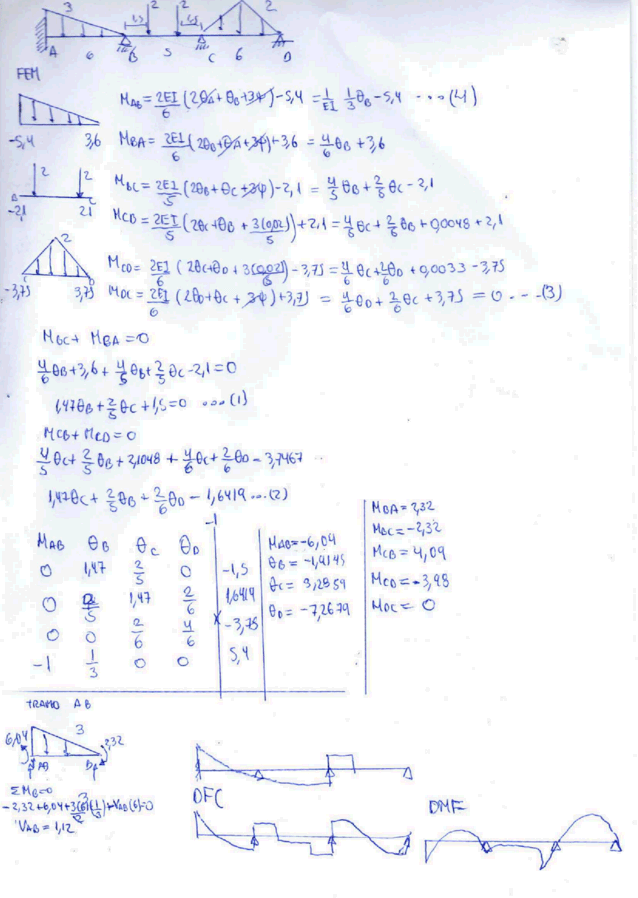 3 1,5 2 2 1,5 2
A 6 B 5 C 6 D
FEM
-5,4 3,6
M_AB = 2EI/6 (2θA + θB + 3Ψ) - 5,4 = 1/EI 1/3 θB - 5,4 ... (4)
M_BA = 2EI/6 (2θB + θA + 3Ψ) + 3,6 = 4/6 θB + 3,6
2 2
-2,1 2,1
M_BC = 2EI/5 (2θB + θC + 3Ψ) - 2,1 = 4/5 θB + 2/5 θC - 2,1
M_CD = 2EI/5 (2θC + θB + 3(0,02)/5) + 2,1 = 4/6 θC + 2/6 θB + 0,0048 + 2,1
2
-3,75 3,75
M_CD = 2EI/6 (2θC + θD + 3(0,02)/6) - 3,75 = 4/6 θC + 2/6 θD + 0,0033 - 3,75
M_DC = 2EI/6 (2θD + θC + 3Ψ) + 3,75 = 4/6 θD + 2/6 θC + 3,75 = 0 ... (3)
M_BC + M_BA = 0
4/6 θB + 3,6 + 4/5 θB + 2/5 θC - 2,1 = 0
1,47θB + 2/5 θC + 1,5 = 0 ... (1)
M_CB + M_CD = 0
4/5 θC + 2/5 θB + 2,1048 + 4/6 θC + 2/6 θD - 3,7467
1,47θC + 2/5 θB + 2/6 θD - 1,6419 ... (2)
M_AB θB θC θD -1
0 1,47 2/5 0 -1,5
0 2/5 1,47 2/6 1,6419
0 0 2/6 4/6 x -3,75
-1 1/3 0 0 5,4
M_AB = -6,04
θB = -1,9145
θC = 3,2859
θD = -7,2679
M_BA = 2,32
M_BC = -2,32
M_CB = 4,09
M_CD = -3,98
M_DC = 0
TRAMO AB
6,04 3 2,32
AB
ΣM_B = 0
V_AB = 1,12
DFC
DMF